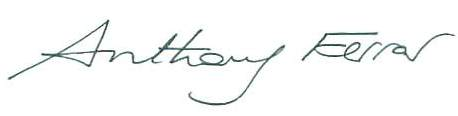 Anthony Ferrar